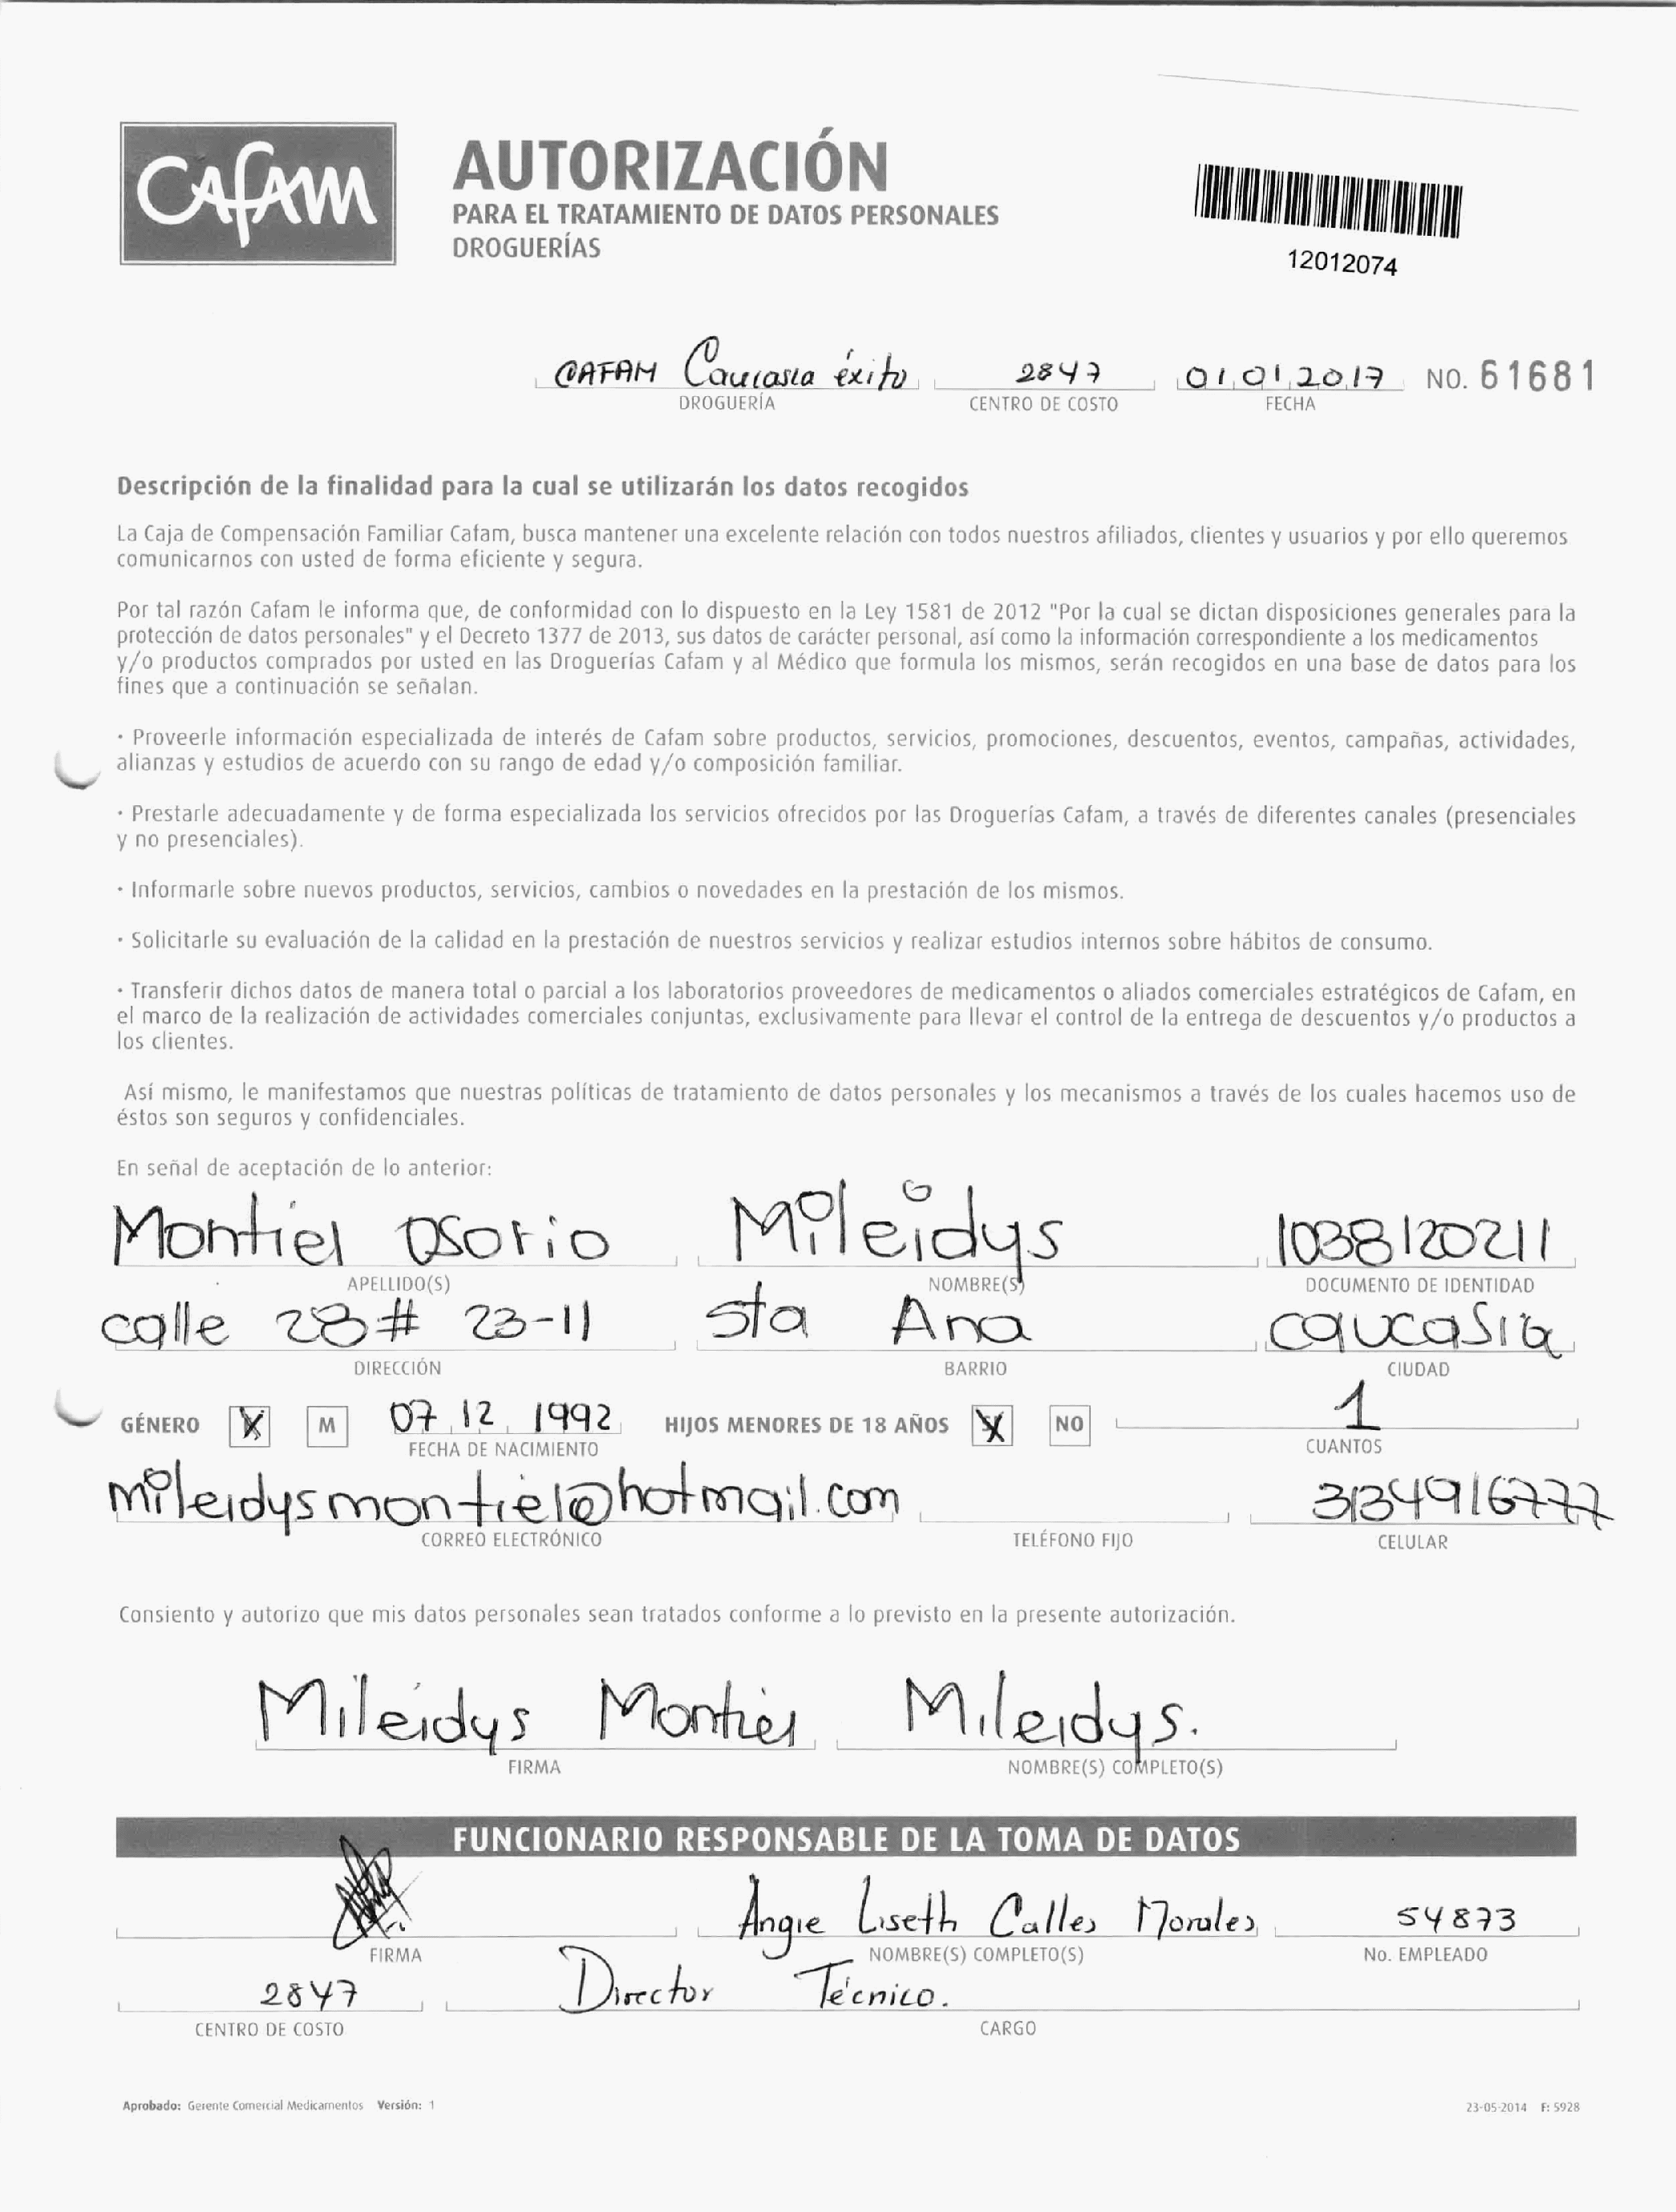 CAFAM
AUTORIZACIÓN
PARA EL TRATAMIENTO DE DATOS PERSONALES
DROGUERÍAS
12012074
CAFAM Caucasia éxito 2847 01.01.2017 NO. 61681
DROGUERÍA CENTRO DE COSTO FECHA
Descripción de la finalidad para la cual se utilizarán los datos recogidos
La Caja de Compensación Familiar Cafam, busca mantener una excelente relación con todos nuestros afiliados, clientes y usuarios y por ello queremos
comunicarnos con usted de forma eficiente y segura.
Por tal razón Cafam le informa que, de conformidad con lo dispuesto en la Ley 1581 de 2012 "Por la cual se dictan disposiciones generales para la
protección de datos personales" y el Decreto 1377 de 2013, sus datos de carácter personal, así como la información correspondiente a los medicamentos
y/o productos comprados por usted en las Droguerías Cafam y al Médico que formula los mismos, serán recogidos en una base de datos para los
fines que a continuación se señalan.
· Proveerle información especializada de interés de Cafam sobre productos, servicios, promociones, descuentos, eventos, campañas, actividades,
alianzas y estudios de acuerdo con su rango de edad y/o composición familiar.
· Prestarle adecuadamente y de forma especializada los servicios ofrecidos por las Droguerías Cafam, a través de diferentes canales (presenciales
y no presenciales).
· Informarle sobre nuevos productos, servicios, cambios o novedades en la prestación de los mismos.
· Solicitarle su evaluación de la calidad en la prestación de nuestros servicios y realizar estudios internos sobre hábitos de consumo.
· Transferir dichos datos de manera total o parcial a los laboratorios proveedores de medicamentos o aliados comerciales estratégicos de Cafam, en
el marco de la realización de actividades comerciales conjuntas, exclusivamente para llevar el control de la entrega de descuentos y/o productos a
los clientes.
Así mismo, le manifestamos que nuestras políticas de tratamiento de datos personales y los mecanismos a través de los cuales hacemos uso de
éstos son seguros y confidenciales.
En señal de aceptación de lo anterior:
Montiel Osorio Mileidys 1038120211
APELLIDO(S) NOMBRE(S) DOCUMENTO DE IDENTIDAD
calle 28# 23-11 sta Ana caucasia
DIRECCIÓN BARRIO CIUDAD
GÉNERO X M 07.12.1992 HIJOS MENORES DE 18 AÑOS X NO 1
FECHA DE NACIMIENTO CUANTOS
mileidysmontiel@hotmail.com 3134916777
CORREO ELECTRÓNICO TELÉFONO FIJO CELULAR
Consiento y autorizo que mis datos personales sean tratados conforme a lo previsto en la presente autorización.
Mileidys Montiel Mileidys.
FIRMA NOMBRE(S) COMPLETO(S)
FUNCIONARIO RESPONSABLE DE LA TOMA DE DATOS
Angie Liseth Calles Morales 54873
FIRMA NOMBRE(S) COMPLETO(S) No. EMPLEADO
2847 Director Técnico.
CENTRO DE COSTO CARGO
Aprobado: Gerente Comercial Medicamentos Versión: 1 23-05-2014 F: 5928